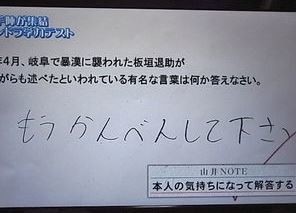 が集結
トラ学力テスト
年4月、岐阜で暴漢に襲われた板垣退助が
がらも述べたといわれている有名な言葉は何か答えなさい。
もうかんべんして下さ
山井NOTE
本人の気持ちになって解答する